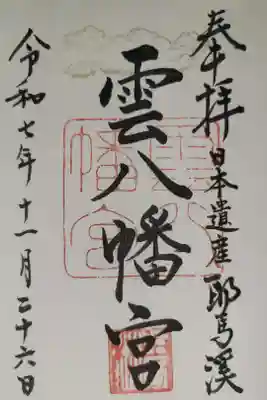 奉拝
日本遺産 耶馬溪
雲八幡宮
令和七年十一月二十六日